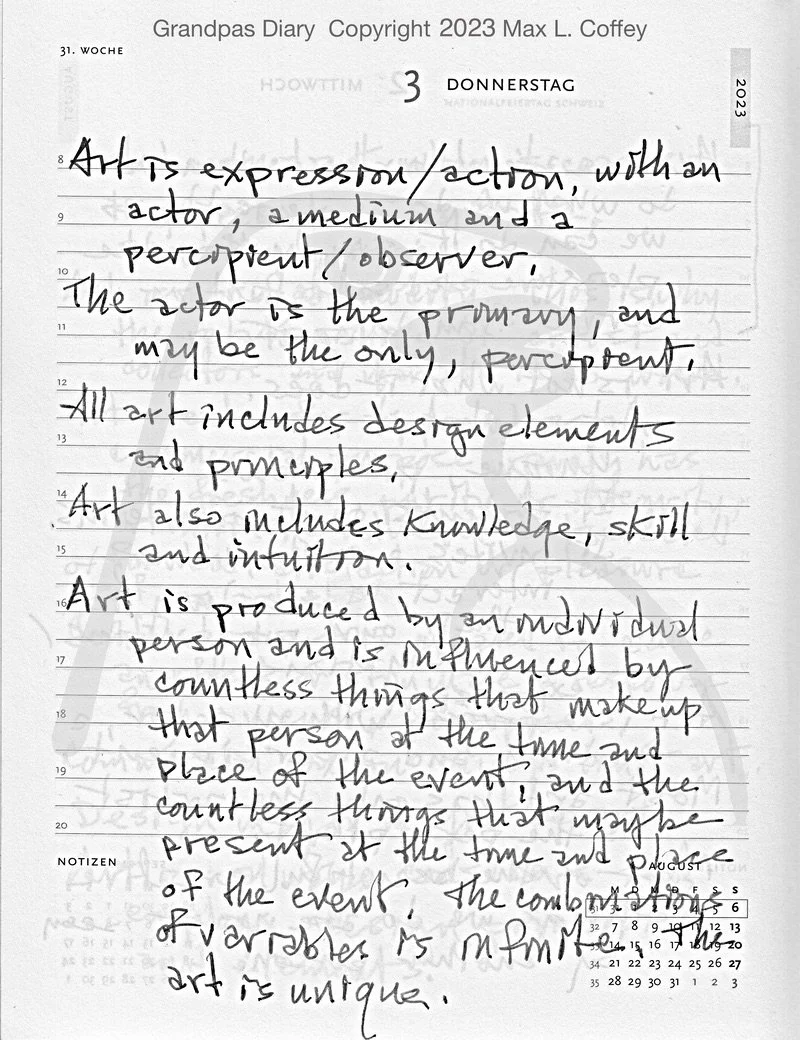 Grandpas Diary Copyright 2023 Max L. Coffey
31. WOCHE
3 DONNERSTAG
2023
MITTWOCH
NATIONALFEIERTAG SCHWEIZ
8 Art is expression/action, with an
9 actor, a medium and a
percipient/observer.
10 The actor is the primary, and
11 may be the only, percipient.
12 All art includes design elements
13 and principles.
14 Art also includes Knowledge, skill
15 and intuition.
16 Art is produced by an individual
person and is influenced by
17 countless things that make up
18 that person at the time and
19 place of the event, and the
countless things that may be
20 present at the time and place
NOTIZEN
AUGUST
of the event. The combinations
of variables is infinite. The
art is unique.
M D M D F S S
31 1 2 3 4 5 6
32 7 8 9 10 11 12 13
33 14 15 16 17 18 19 20
34 21 22 23 24 25 26 27
35 28 29 30 31 1 2 3